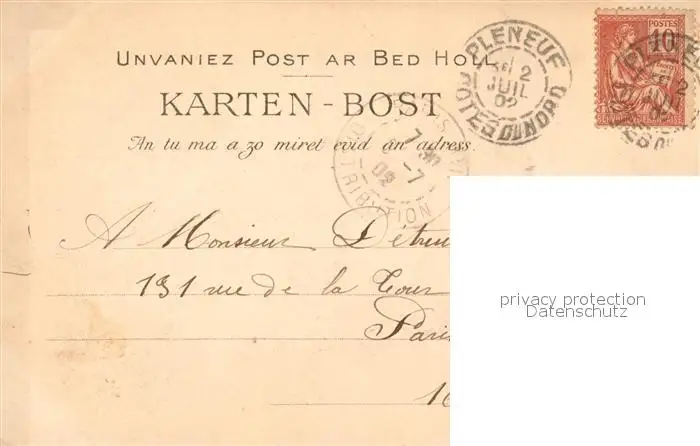 UNVANIEZ POST AR BED HOLL
KARTEN-BOST
An tu ma a zo miret evid an adress.
PLENEUF
2
JUIL
02
COTES DU NORD
POSTES
10
7
02
DISTRIBUTION
A Monsieur
131 rue de la Tour
Paris
privacy protection
Datenschutz